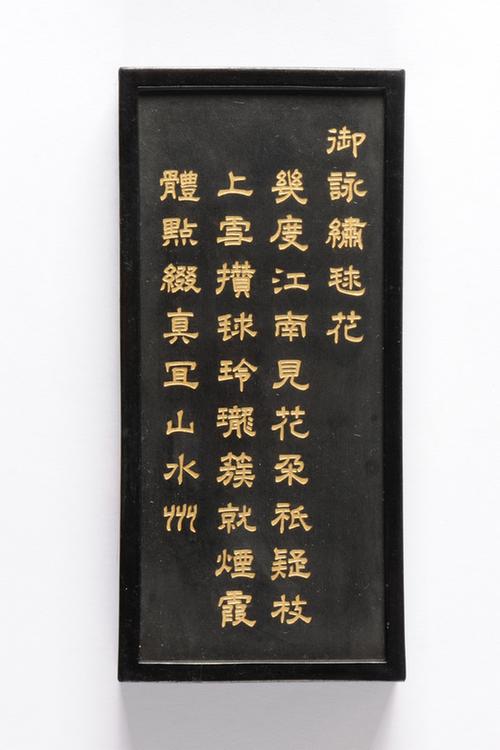 御詠繡毬花
幾度江南見花朶祇疑枝
上雪攢球玲瓏簇就煙霞
體點綴真宜山水州